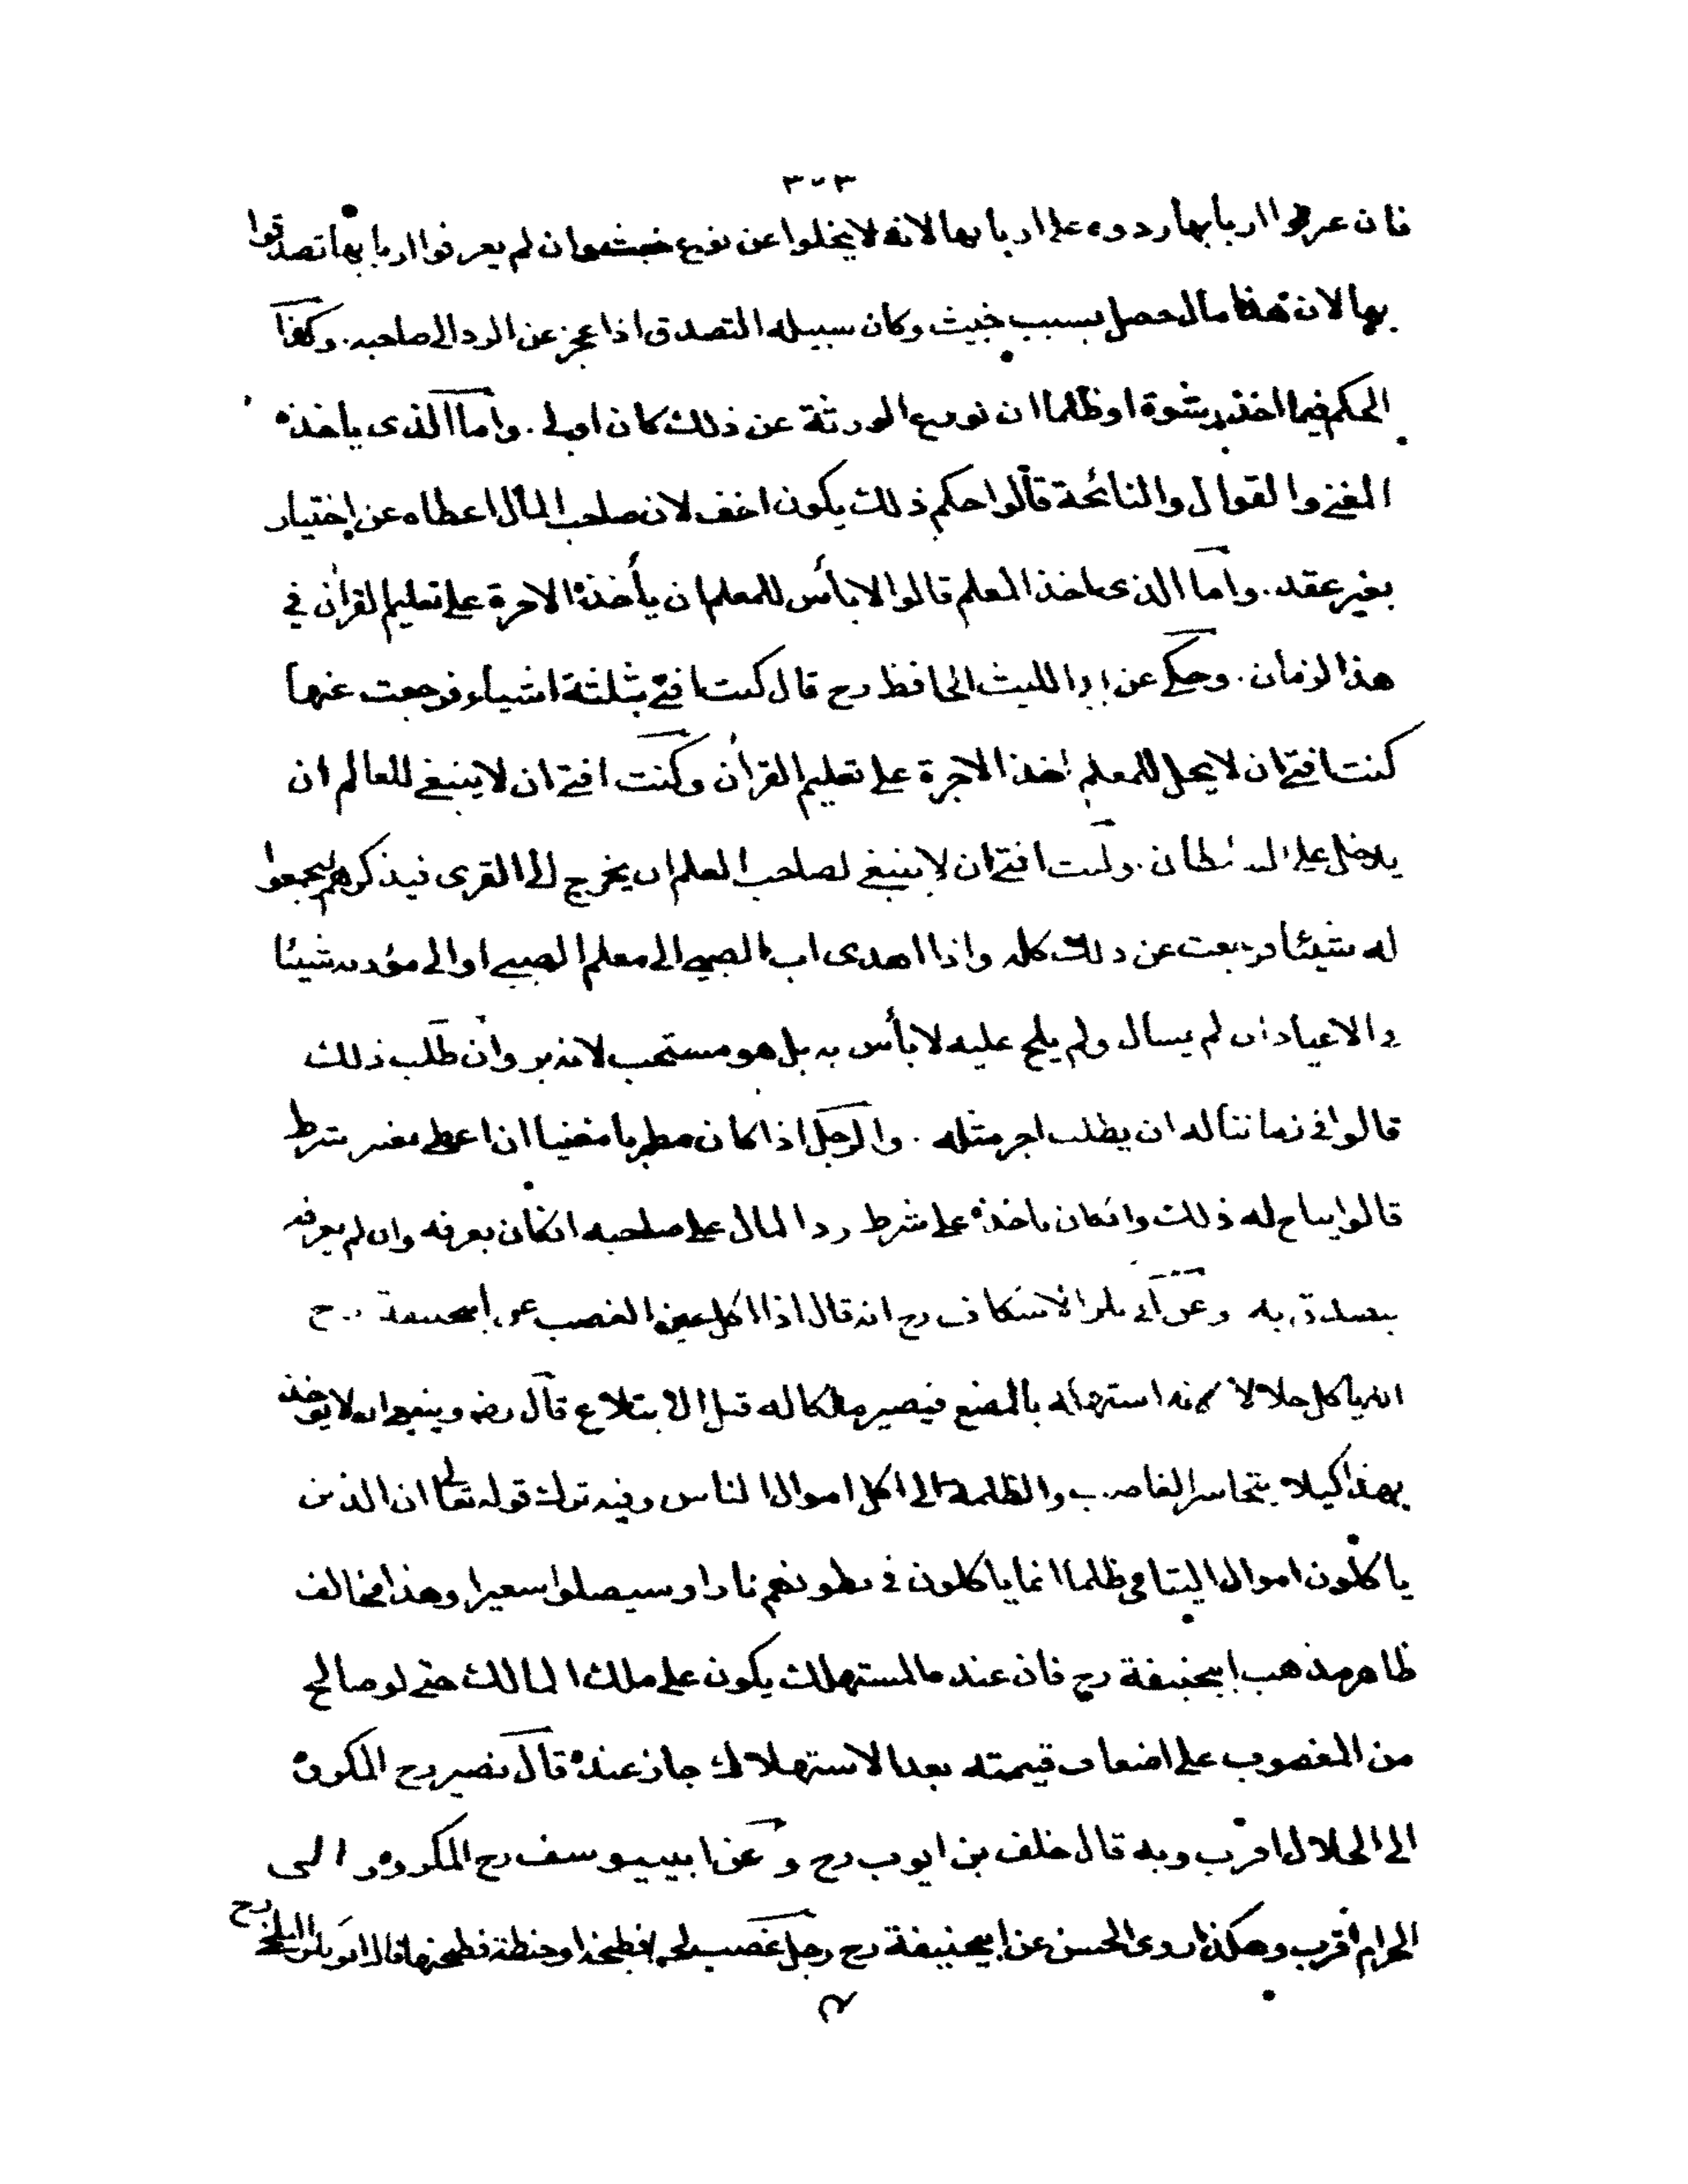 ٣٠٣
فان عرفوا اربابها ردوه على اربابها لانه لا يخلوا عن نوع خبث وان لم يعرفوا اربابها تصدقوا
بها لان هذا مال حصل بسبب خبيث وكان سبيله التصدق اذا عجز عن الرد الى صاحبه. وكذا
الحكم فيما اخذ برشوة او ظلما ان تورع الورثة عن ذلك كان اولى. واما الذى ياخذه
المغنى والقوال والنائحة قالوا حكم ذلك يكون اخف لان صاحب المال اعطاه عن اختيار
بغير عقد. واما الذى ياخذ المعلم قالوا لا بأس للمعلم ان يأخذ الاجرة على تعليم القرأن فى
هذا الزمان. وحكى عن ابى الليث الحافظ رح قال كنت افتى بثلثة اشياء فرجعت عنها
كنت افتى ان لا يحل للمعلم اخذ الاجرة على تعليم القرأن وكنت افتى ان لا ينبغى للعالم ان
يدخل على السلطان. وكنت افتى ان لا ينبغى لصاحب العلم ان يخرج الى القرى فيذكرهم ليجمعوا
له شيئا فرجعت عن ذلك كله واذا اهدى اب الصبى الى معلم الصبى او الى مؤدبه شيئا
فى الاعياد ان لم يسال ولم يلح عليه لا بأس به بل هو مستحب لانه بر وان طلب ذلك
قالوا فى زماننا له ان يطلب اجر مثله. والرجل اذا كان مطربا مغنيا ان اعطى بغير شرط
قالوا يباح له ذلك وانكان ياخذه على شرط رد المال على صاحبه انكان يعرفه وان لم يعرفه
يتصدق به وعن ابى بكر الاسكاف رح انه قال اذا اكل عين الغصب عن ابيحنيفة رح
انه ياكل حلالا لانه استهلكه بالمضغ فيصير ملكا له قبل الابتلاع قال رضه وينبغى ان لا يؤخذ
بهذا كيلا يتجاسر الغاصب والظلمة الى اكل اموال الناس وفيه ترك قوله تعالى ان الذين
ياكلون اموال اليتامى ظلما انما ياكلون فى بطونهم نارا وسيصلون سعيرا وهذا مخالف
ظاهر مذهب ابيحنيفة رح فان عنده المستهلك يكون على ملك المالك حتى لو صالح
من المغصوب على اضعاف قيمته بعد الاستهلاك جاز عنده قال نصير رح المكروه
الى الحلال اقرب وبه قال خلف بن ايوب رح وعن ابيـيوسف رح المكروه الى
الحرام اقرب وهكذا روى الحسن عن ابيحنيفة رح رجل غصب لحما فطبخه او حنطة فطحنها قال ابو بكر البلخى رح